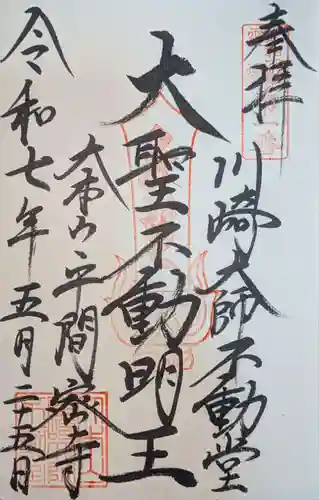 奉拝
川崎大師不動堂
大聖不動明王
大本山平間寺
令和七年五月二十五日